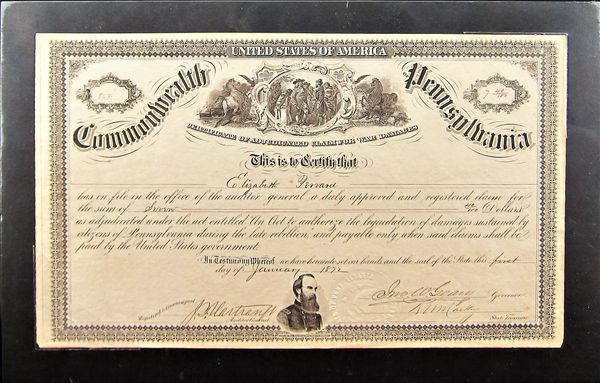 UNITED STATES OF AMERICA
Commonwealth Pennsylvania
CERTIFICATE OF ADJUDICATED CLAIM FOR WAR DAMAGES
This is to Certify that
Elizabeth
has on file in the office of the auditor general a duly approved and registered claim for
the sum of Seven Dollars
as adjudicated under the act entitled An Act to authorize the liquidation of damages sustained by
citizens of Pennsylvania during the late rebellion and payable only when said claims shall be
paid by the United States government
In Testimony Whereof we have hereunto set our hands and the seal of the State this first
day of January 1872
Registered & Countersigned
J. F. Hartranft
Auditor General
Jno W Geary Governor
State Treasurer